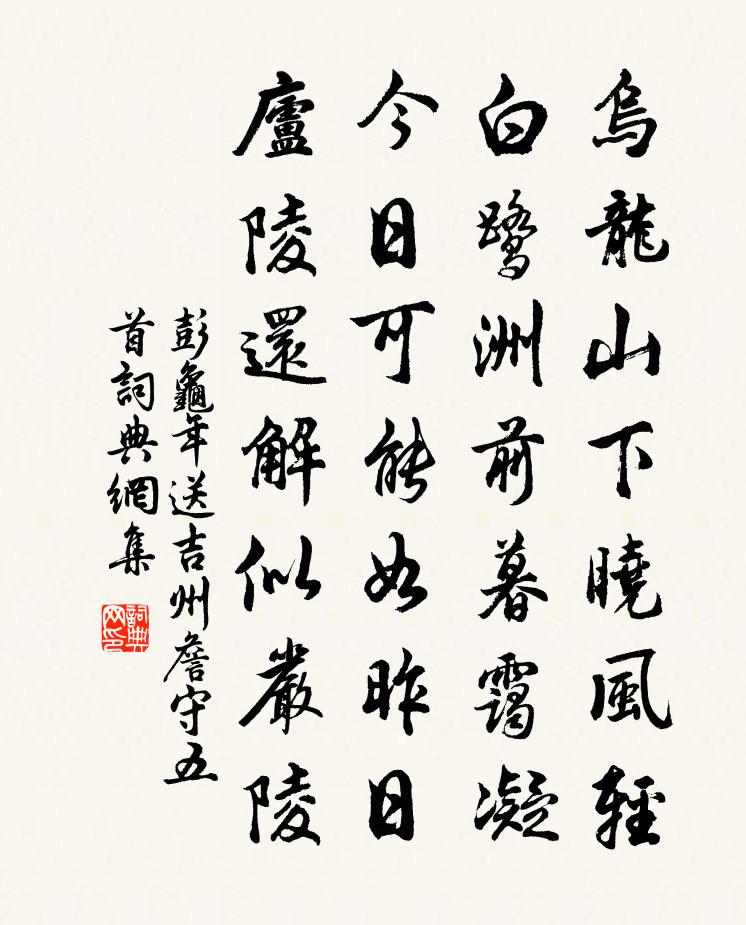 烏龍山下曉風輕
白鷺洲前暮靄凝
今日可能如昨日
廬陵還解似嚴陵
彭龜年送吉州詹守五
首詞典網集
詞典
网印